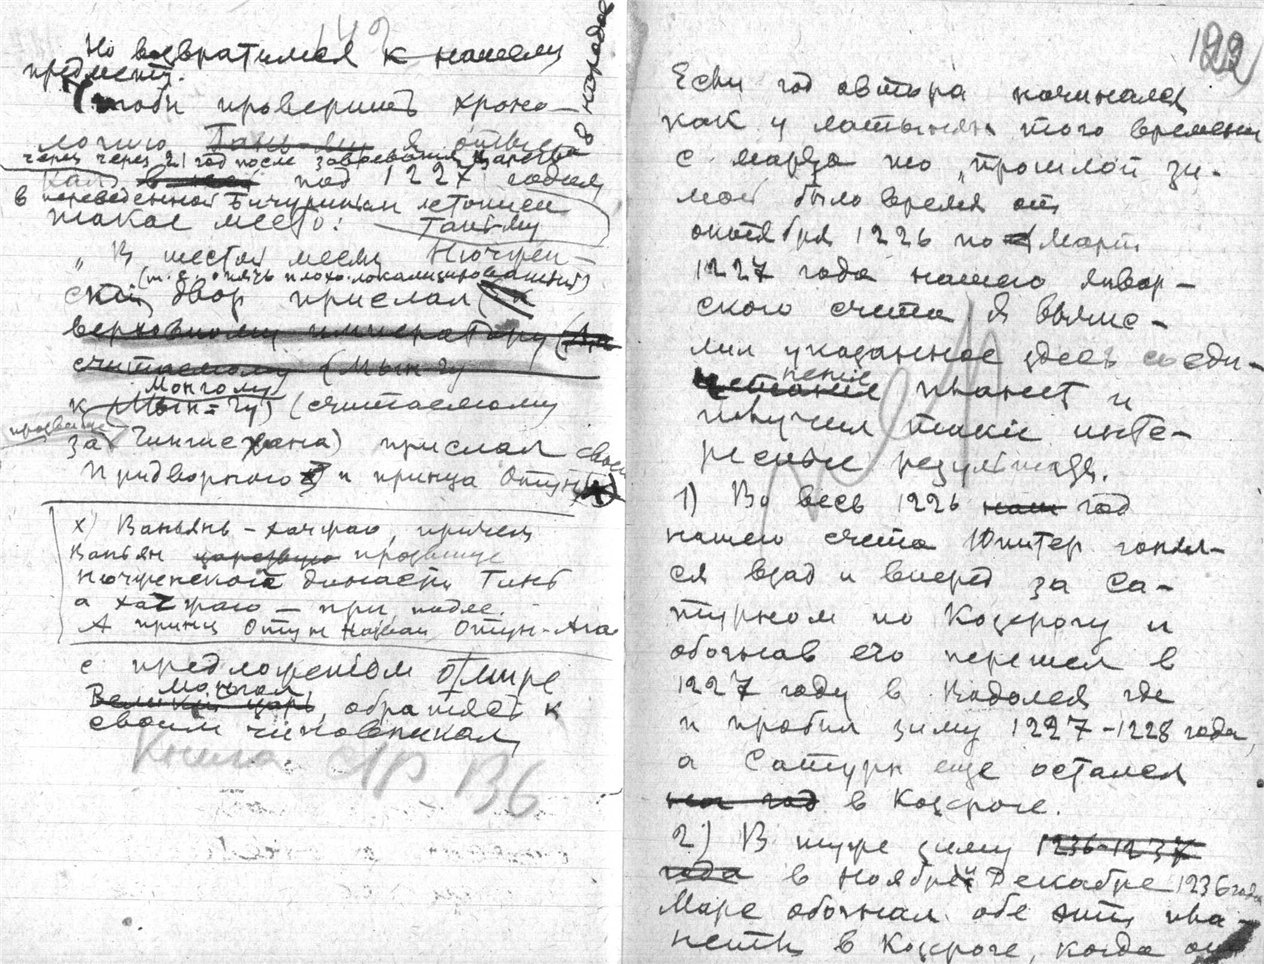 142
Но возвратимся к нашему
предмету.
Чтобы проверить хроно-
логию Тань-ли я отыскал
через через 21 год после завоевания царства
под 1227 годом
в переведенной Бичуриным летописи
такое место: Таньму
„В шестой месяц Нючжен-
(т.е. опять плохо локализировашей)
ский двор прислал (за
верховному императору (за
считаемому (Мын-гу
Монголу
к Мын-гу) (считаемому
прозвание
за Чингис хана) прислал своего
Придворного и принца Отун х)
х) Ваньянь-хачжао, причем
Ваньян царствую прозвище
Нючженской династии Гинь
а хачжао – при
А принц Отун назван Отун-Ага
с предложением о мире
монгол
Великий царь, обратясь к
своим чиновникам
Книга стр 136
122
Если год автора начинался
как у латынян того времени
с марта то „прошлой зи-
мой было время от
октября 1226 по март
1227 года нашего январ-
ского счета. Я вычис-
лил указанное здесь соеди-
нение
четание планет и
получил такие инте-
ресные результаты.
1) Во весь 1226 наш год
нашего счета Юпитер гонял-
ся взад и вперед за Са-
турном по Козерогу и
обогнав его перешел в
1227 году в Водолея где
и пробыл зиму 1227-1228 года,
а Сатурн еще остался
год в Козероге.
2) В туже зиму 1236-1237
года в Ноябре и Декабре 1236 года
Марс обогнал обе эти пла-
неты в Козероге, когда они